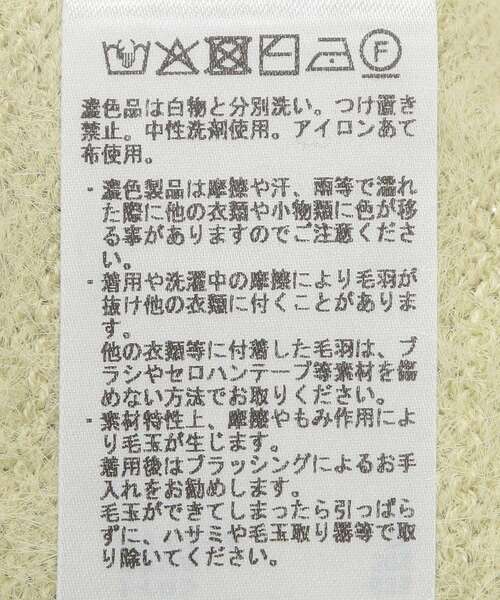 F
濃色品は白物と分別洗い。つけ置き
禁止。中性洗剤使用。アイロンあて
布使用。
・濃色製品は摩擦や汗、雨等で濡れ
た際に他の衣類や小物類に色が移
る事がありますのでご注意くださ
い。
・着用や洗濯中の摩擦により毛羽が
抜け他の衣類に付くことがありま
す。
他の衣類等に付着した毛羽は、ブ
ラシやセロハンテープ等素材を傷
めない方法でお取りください。
・素材特性上、摩擦やもみ作用によ
り毛玉が生じます。
着用後はブラッシングによるお手
入れをお勧めします。
毛玉ができてしまったら引っぱら
ずに、ハサミや毛玉取り器等で取
り除いてください。